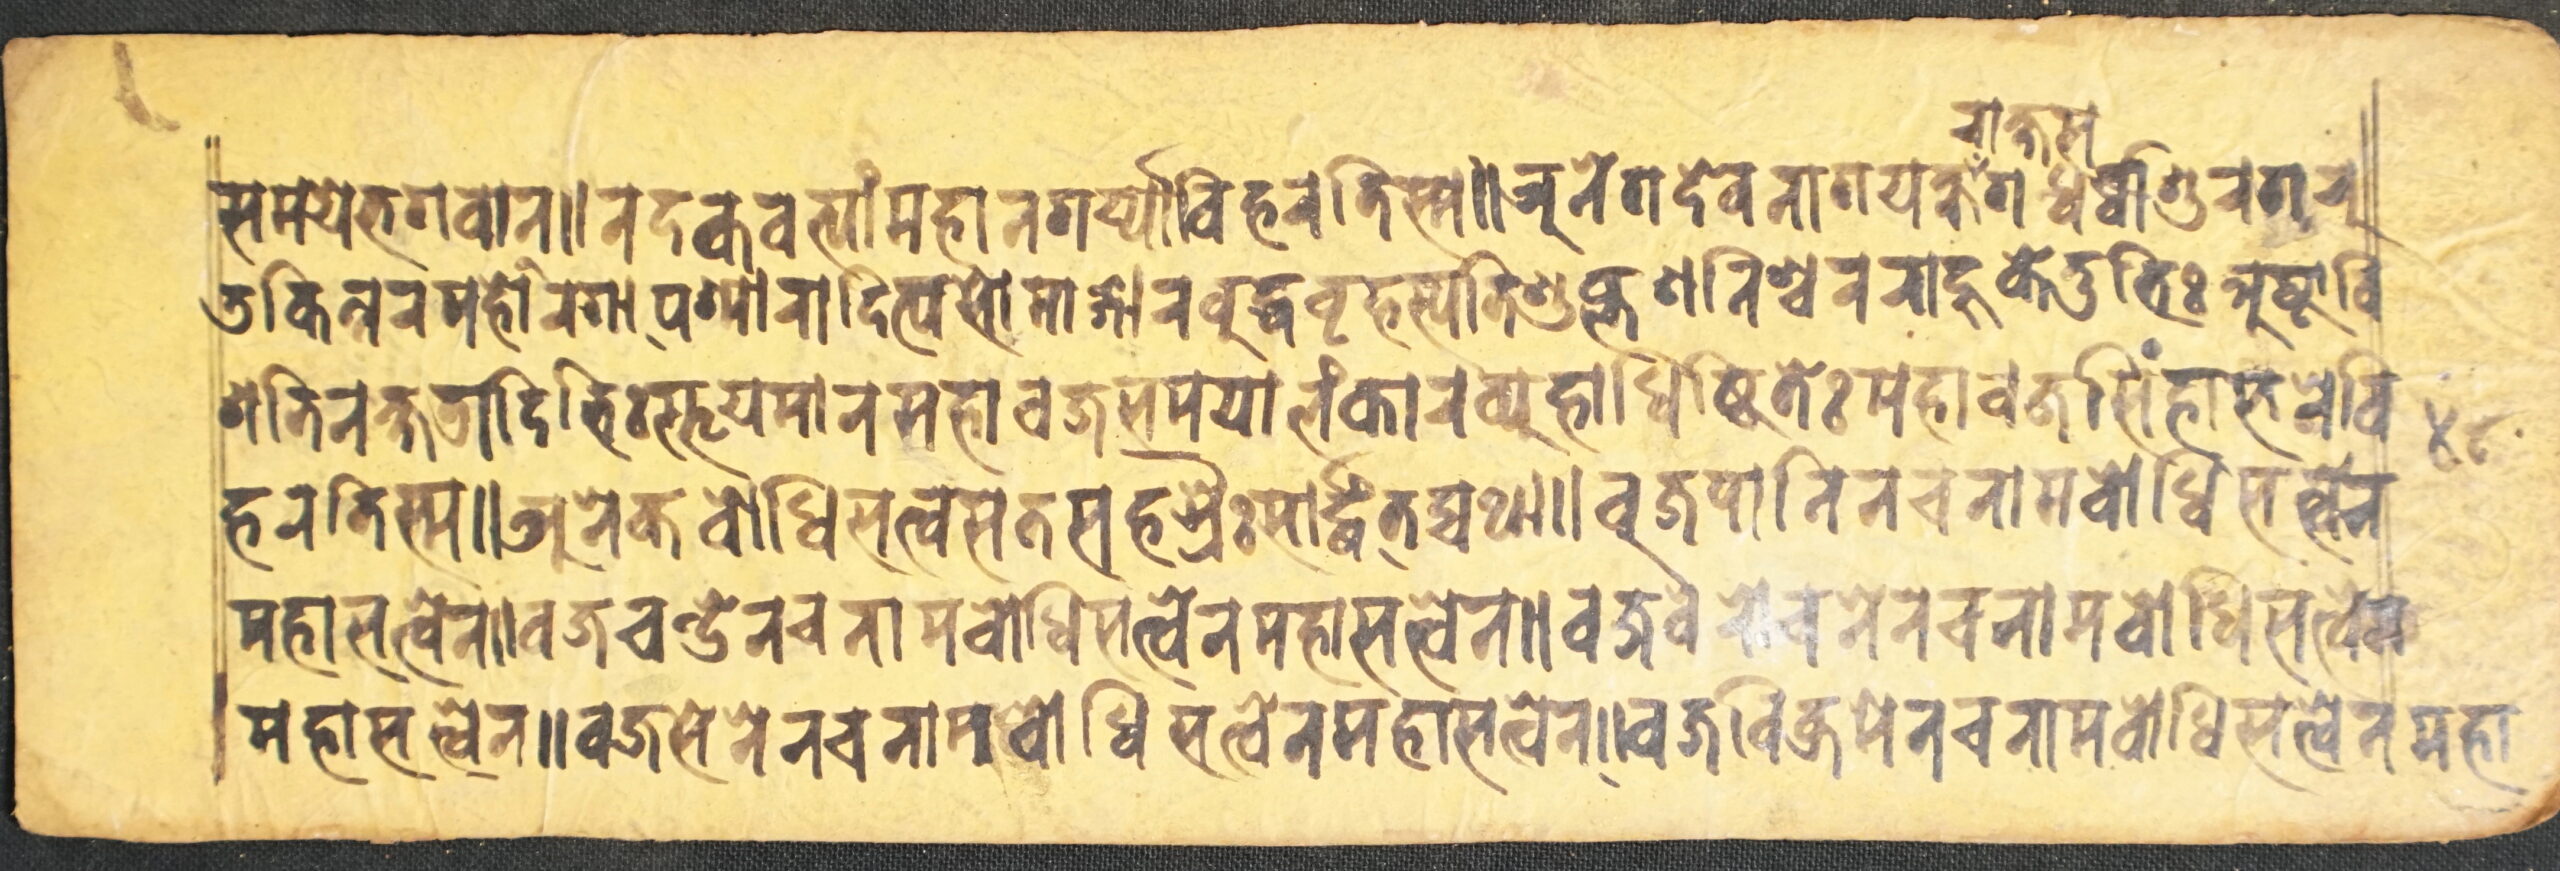 राक्षस
समयेभगवान॥नदकवत्यांमहानगर्य्याविहरतिस्म॥अनेगदेवनागयक्षँगर्धर्वाशुरगरु
डकिन्नरमहोरगापश्मारादित्यसोमाङ्गारवुद्धवृहस्पतिशुक्रशनिश्चरराहूकेतुभिः अष्टावि
शतिनक्षत्रादिभिःस्तूयमानमहावज्रसमयालंकारव्यूहाधिष्ठितेः महावज्रसिंहासनेवि
४८
हरतिस्म॥अनेकबोधिसत्वसतसहश्रैःसार्द्धंतद्यथा॥वज्रपानिनचनामबोधिसत्वेन
महासत्वेन॥वज्रचण्डेनचनामबोधिसत्वेनमहासत्वेन॥वज्रवैरोचनेनचनामबोधिसत्वेन
महासत्वेन॥वज्रसेनेनचनामबोधिसत्वेनमहासत्वेन॥वज्रविक्रमेनचनामबोधिसत्वेनमहा